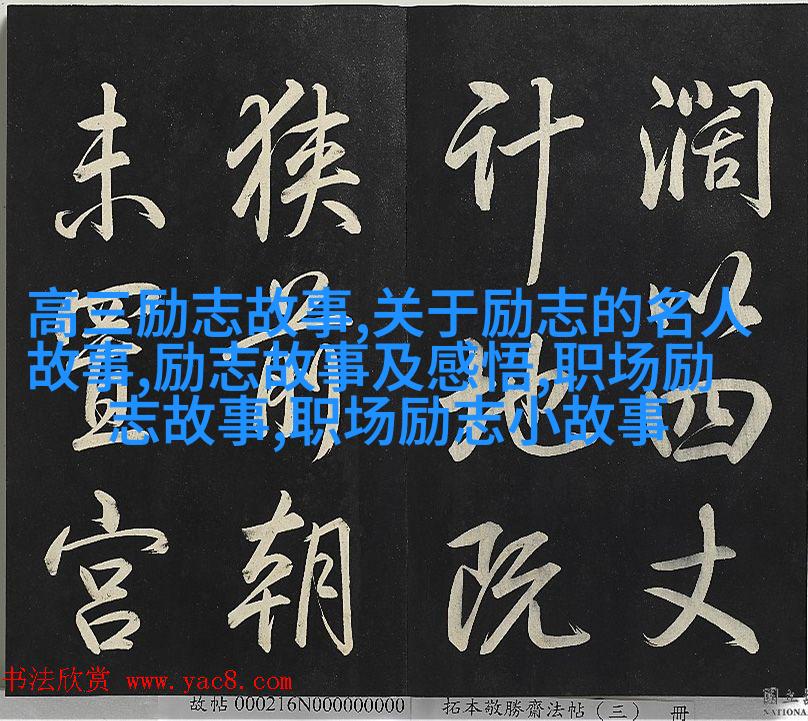 濶以四丈
计地既
狭前朝
未置宫
高三励志故事,关于励志的名人
故事,励志故事及感悟,职场励
志故事,职场励志小故事
书法欣赏 www.yac8.com
故帖 000216N000000000 拓本敬勝齋法帖（三） 冊